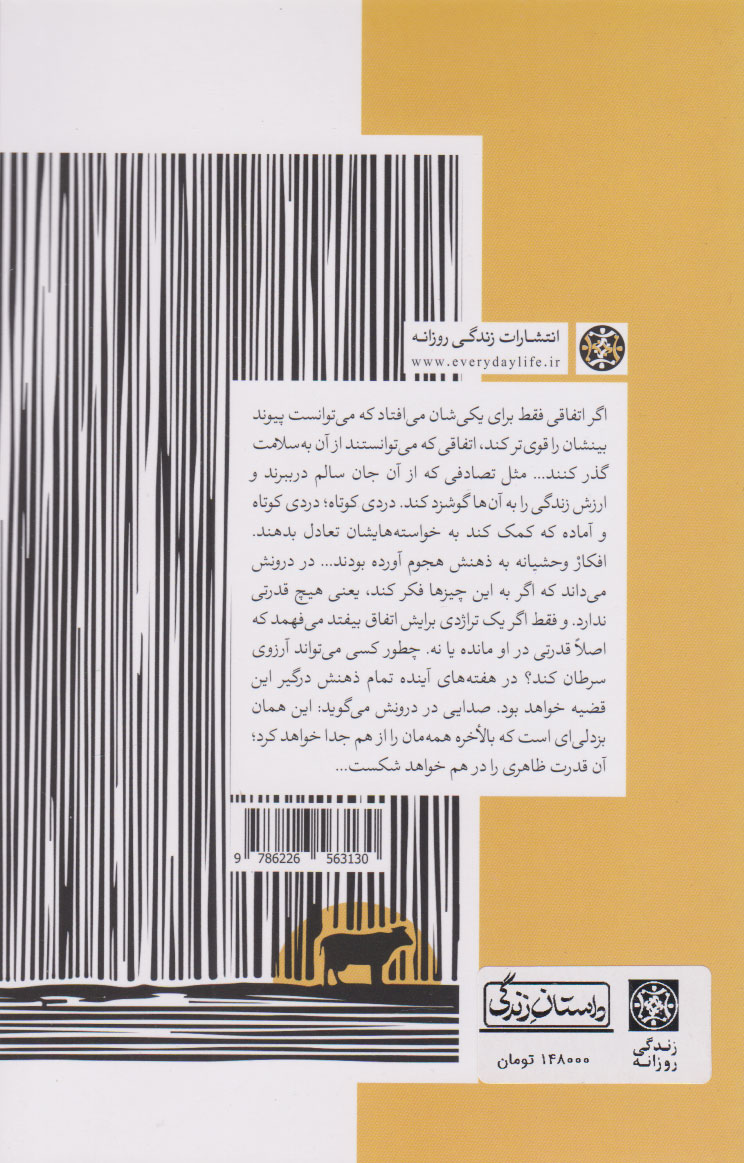 انتشارات زندگی روزانه
www.everydaylife.ir
اگر اتفاقی فقط برای یکی‌شان می‌افتاد که می‌توانست پیوند
بینشان را قوی‌تر کند، اتفاقی که می‌توانستند از آن به‌سلامت
گذر کنند... مثل تصادفی که از آن جان سالم درببرند و
ارزش زندگی را به آن‌ها گوشزد کند. دردی کوتاه؛ دردی کوتاه
و آماده که کمک کند به خواسته‌هایشان تعادل بدهند.
افکارْ وحشیانه به ذهنش هجوم آورده بودند... در درونش
می‌داند که اگر به این چیزها فکر کند، یعنی هیچ قدرتی
ندارد. و فقط اگر یک تراژدی برایش اتفاق بیفتد می‌فهمد که
اصلاً قدرتی در او مانده یا نه. چطور کسی می‌تواند آرزوی
سرطان کند؟ در هفته‌های آینده تمام ذهنش درگیر این
قضیه خواهد بود. صدایی در درونش می‌گوید: این همان
بزدلی‌ای است که بالأخره همه‌مان را از هم جدا خواهد کرد؛
آن قدرت ظاهری را در هم خواهد شکست...
9 786226 563130
داستانِ زندگی
زندگی
روزانه
۱۴۸۰۰۰ تومان